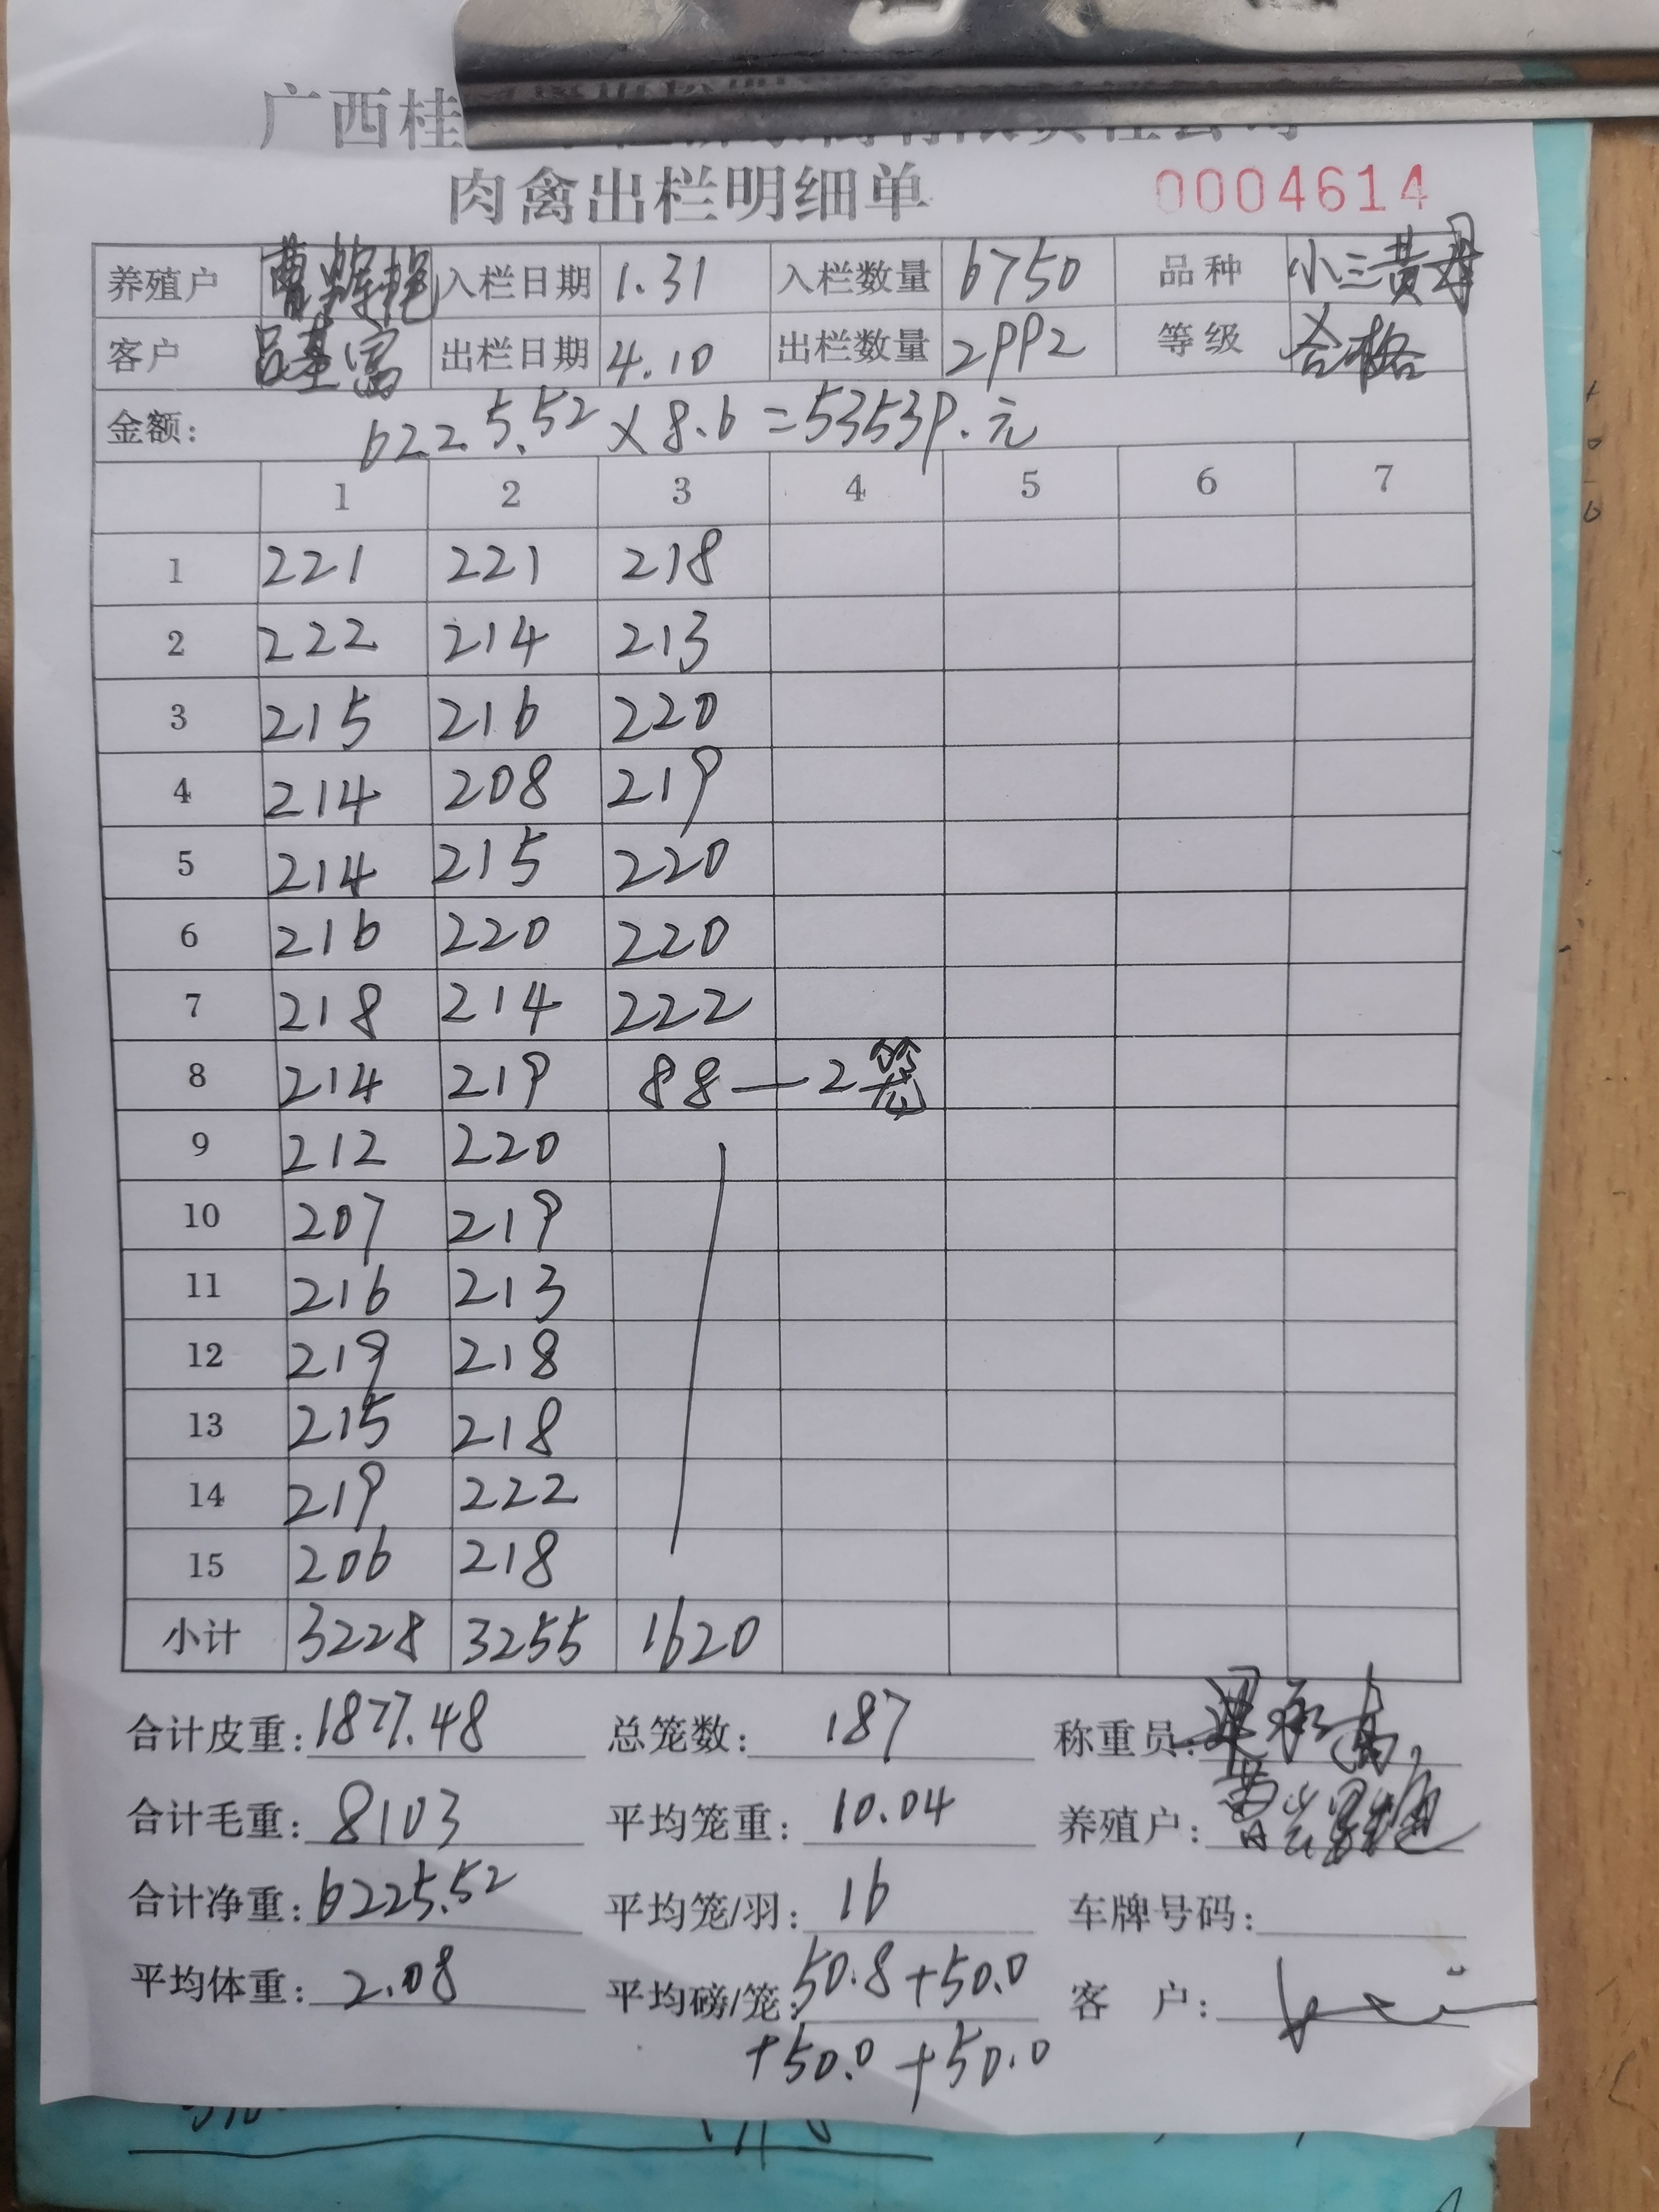 广西桂
肉禽出栏明细单 0004614
养殖户 入栏日期 1.31 入栏数量 6750 品种 小三黄母
客户 吕基富 出栏日期 4.10 出栏数量 2992 等级 合格
金额: 6225.52×8.6=53539.元
1 2 3 4 5 6 7
1 221 221 218
2 222 214 213
3 215 216 220
4 214 208 219
5 214 215 220
6 216 220 220
7 218 214 222
8 214 219 88—2笼
9 212 220
10 207 219
11 216 213
12 219 218
13 215 218
14 219 222
15 206 218
小计 3228 3255 1620
合计皮重: 1877.48 总笼数: 187 称重员:
合计毛重: 8103 平均笼重: 10.04 养殖户:
合计净重: 6225.52 平均笼/羽: 16 车牌号码:
平均体重: 2.08 平均磅/笼: 50.8+50.0 客 户:
+50.0+50.0